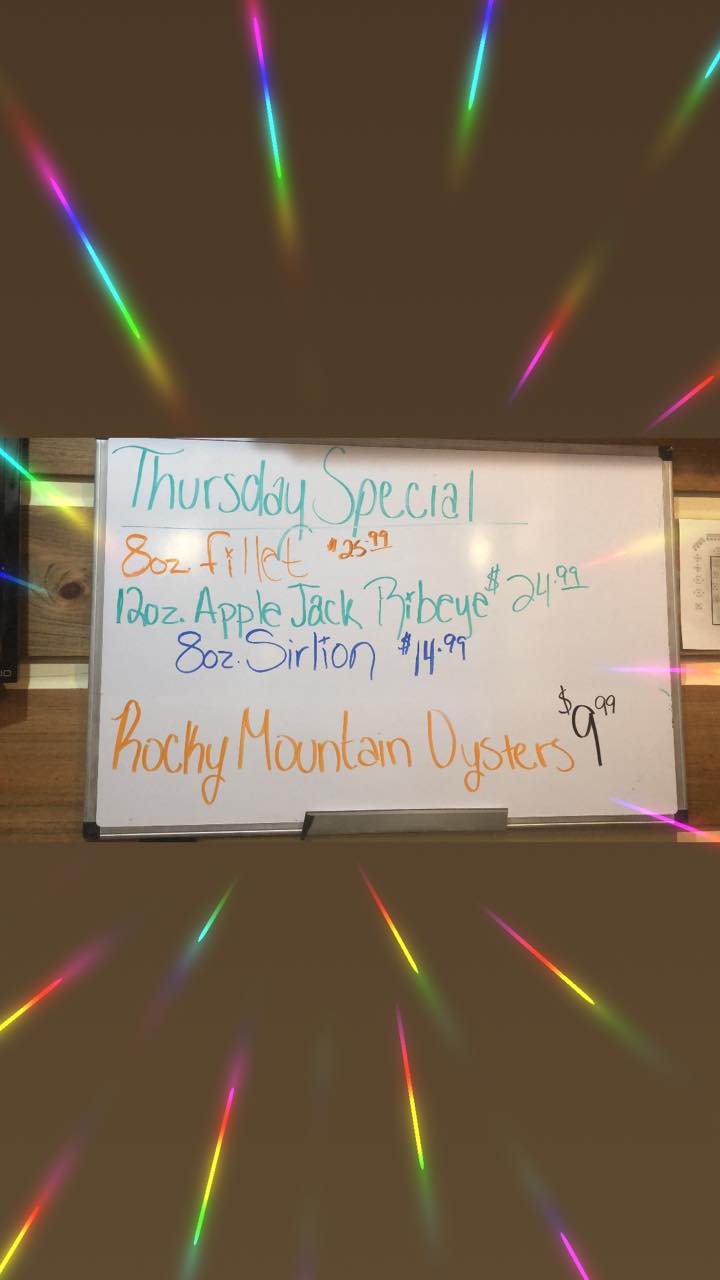 Thursday Special
8oz fillet $25.99
12oz. Apple Jack Ribeye $24.99
8oz. Sirlion $14.99
Rocky Mountain Oysters $9.99